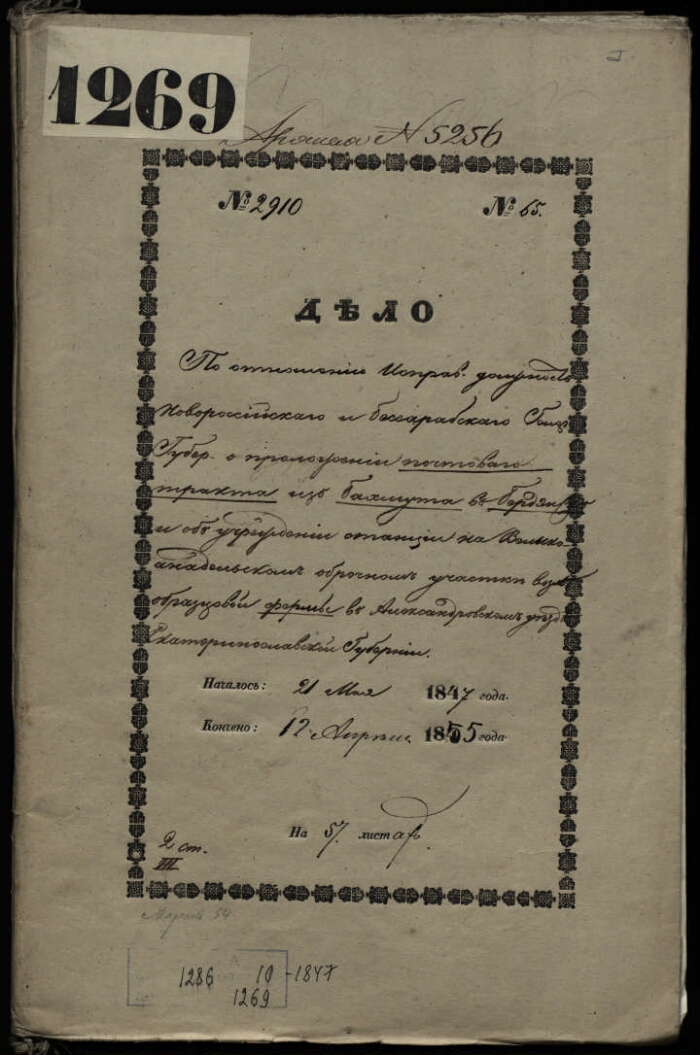 1269
Архива N 5256
№ 2910 № 65.
ДѢЛО
По отношенію Исправ. должность
Новороссійскаго и бессарабскаго Ген
Губер. о проложеніи почтоваго
тракта изъ Бахмута въ Бердянскъ
и объ учрежденіи станціи на Велико
анадольскомъ оброчномъ участкѣ
образцовой фермы въ Александровскомъ уѣздѣ
Екатеринославской Губерніи.
Началось: 21 Мая 1847 года.
Кончено: 12 Апрѣля 1855 года
На 57 листахъ
2 ст.
III
54
1286 10-1847
1269